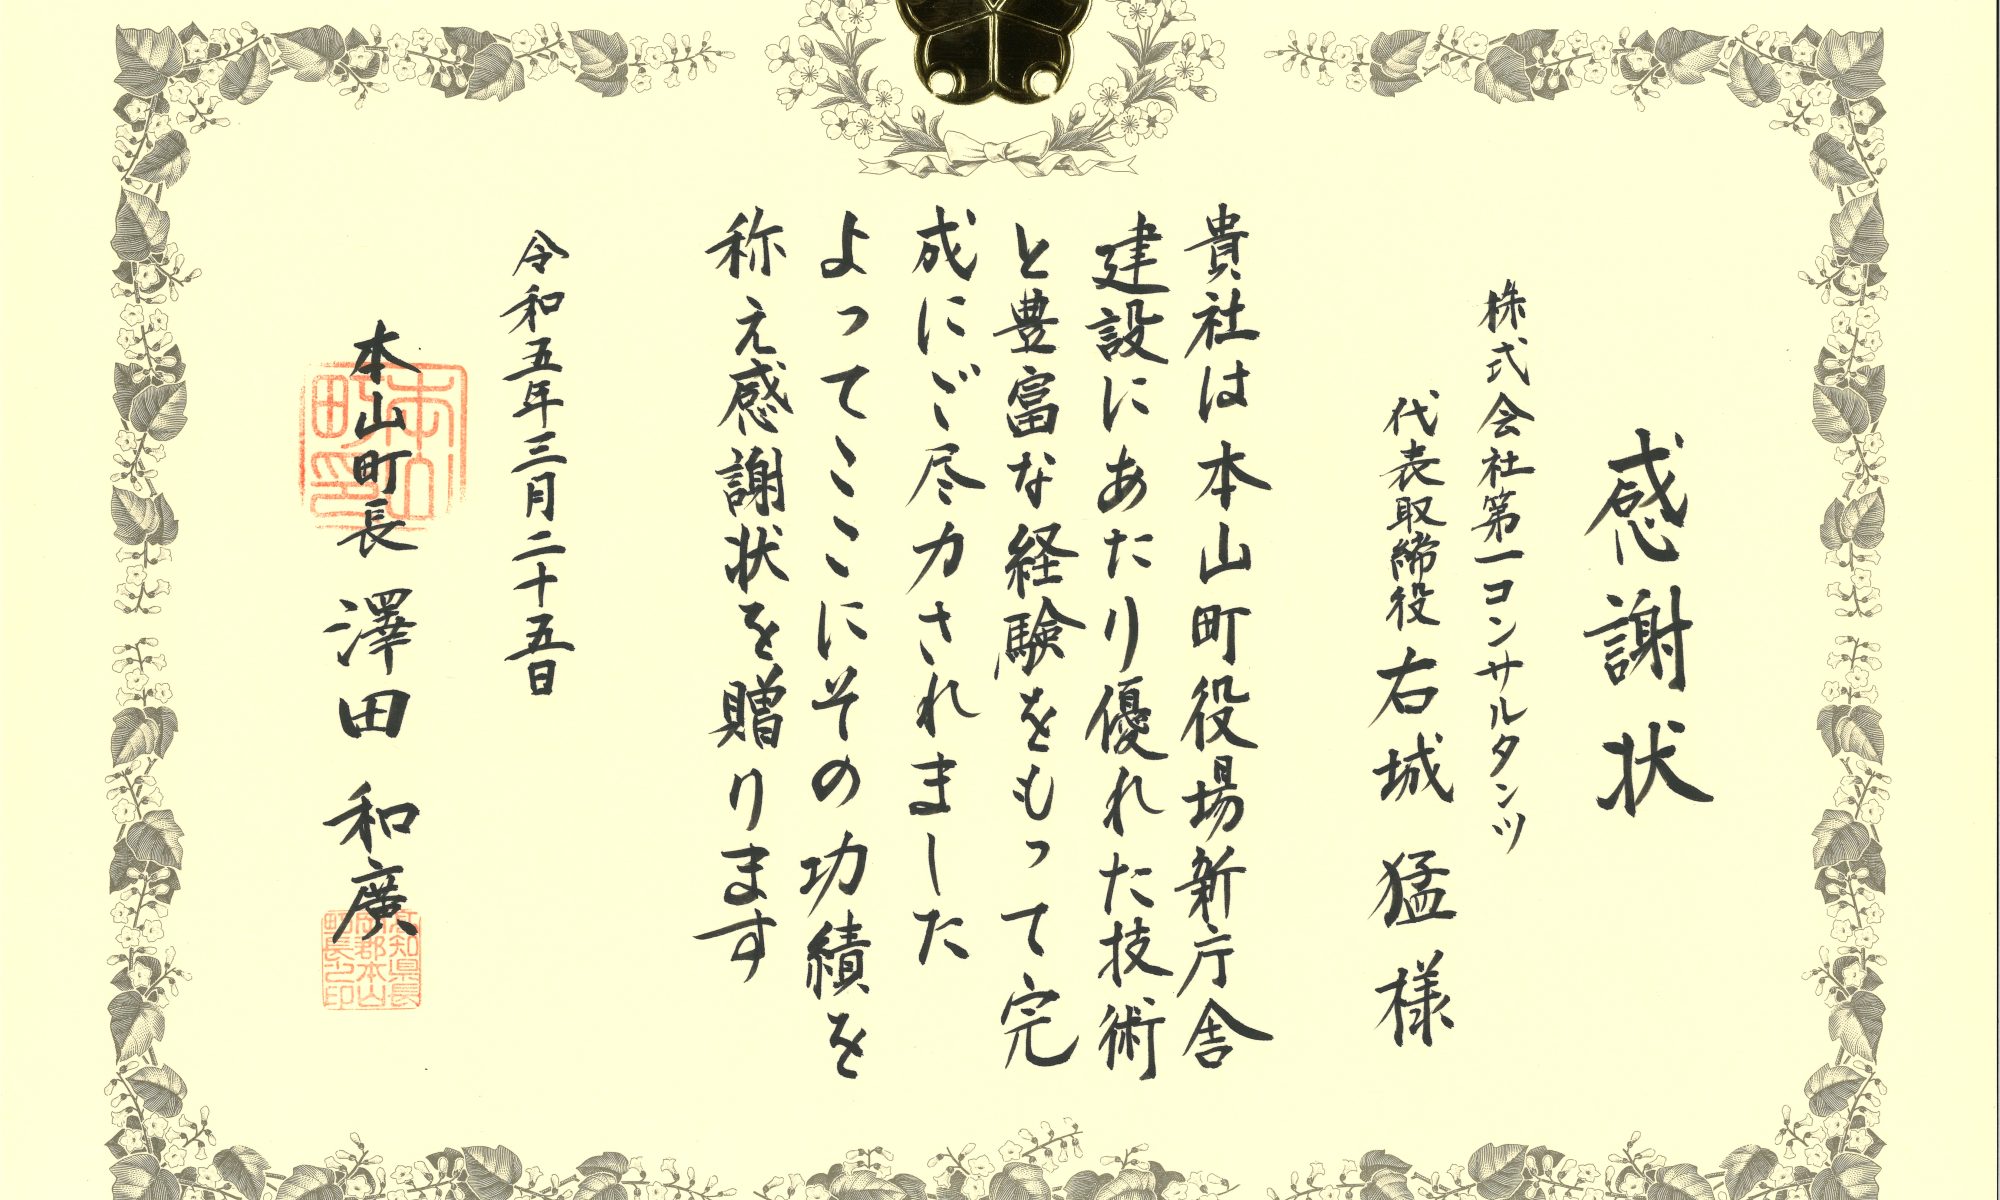 感謝状
株式会社第一コンサルタンツ
代表取締役 右城 猛 様
貴社は本山町役場新庁舎
建設にあたり優れた技術
と豊富な経験をもって完
成にご尽力されました
よってここにその功績を
称え感謝状を贈ります
令和五年三月二十五日
本山町長 澤田 和廣
本山町印
高知県長
岡郡本山
町長之印